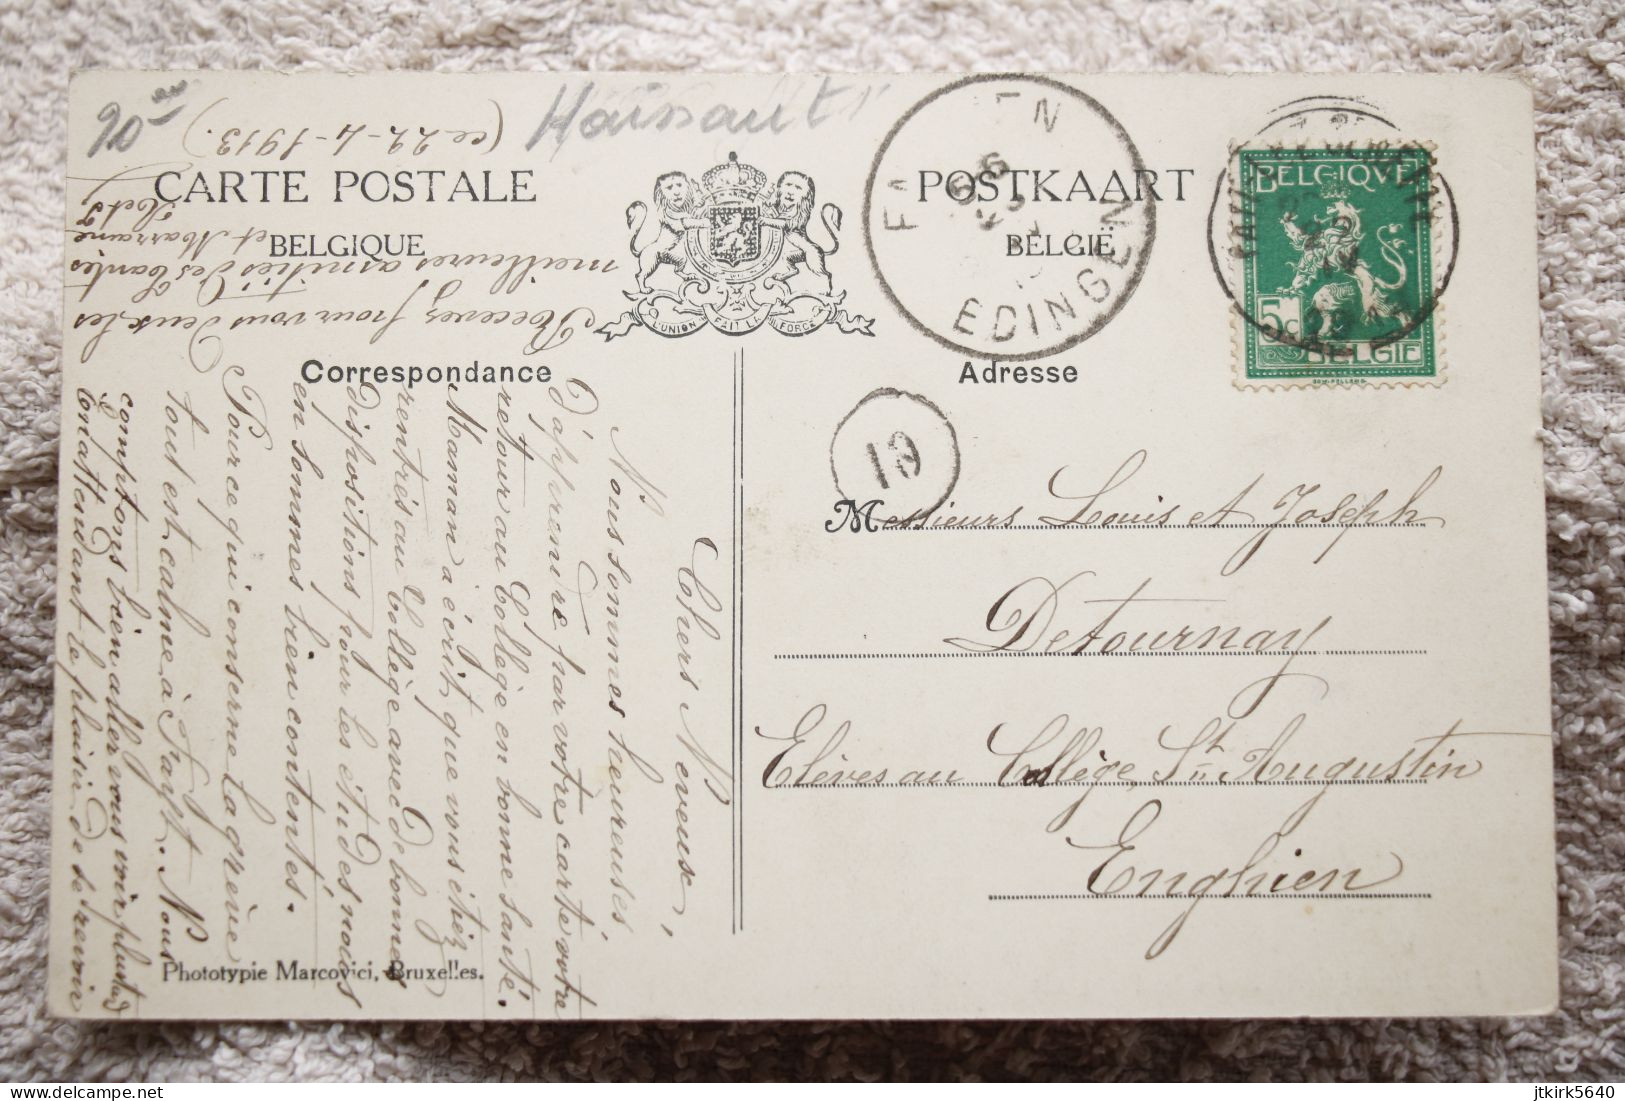 90
Hainaut
(ce 22-4-1913.)
CARTE POSTALE
BELGIQUE
POSTKAART
BELGIË
L'UNION FAIT LA FORCE
EDINGEN
BELGIQUE
5c
BELGIË
Correspondance
Adresse
13
Messieurs Louis et Joseph
Detournay
Elèves au Collège St Augustin
Enghien
Chers Neveux,
Nous sommes heureuses,
d'apprendre par votre carte votre
retour au Collège en bonne santé.
Maman a écrit que vous étiez
rentrés au Collège avec de bonnes
dispositions pour les études nous
en sommes bien contentes.
Pour ce qui conserne la grève
tout est calme à Fayt. Nous
comptons bien aller vous voir plus tard
En attendant le plaisir de se revoir
Recevez pour vous deux les
meilleures amitiés des tantes
et Marraine
Phototypie Marcovici, Bruxelles.
jtkirk5640